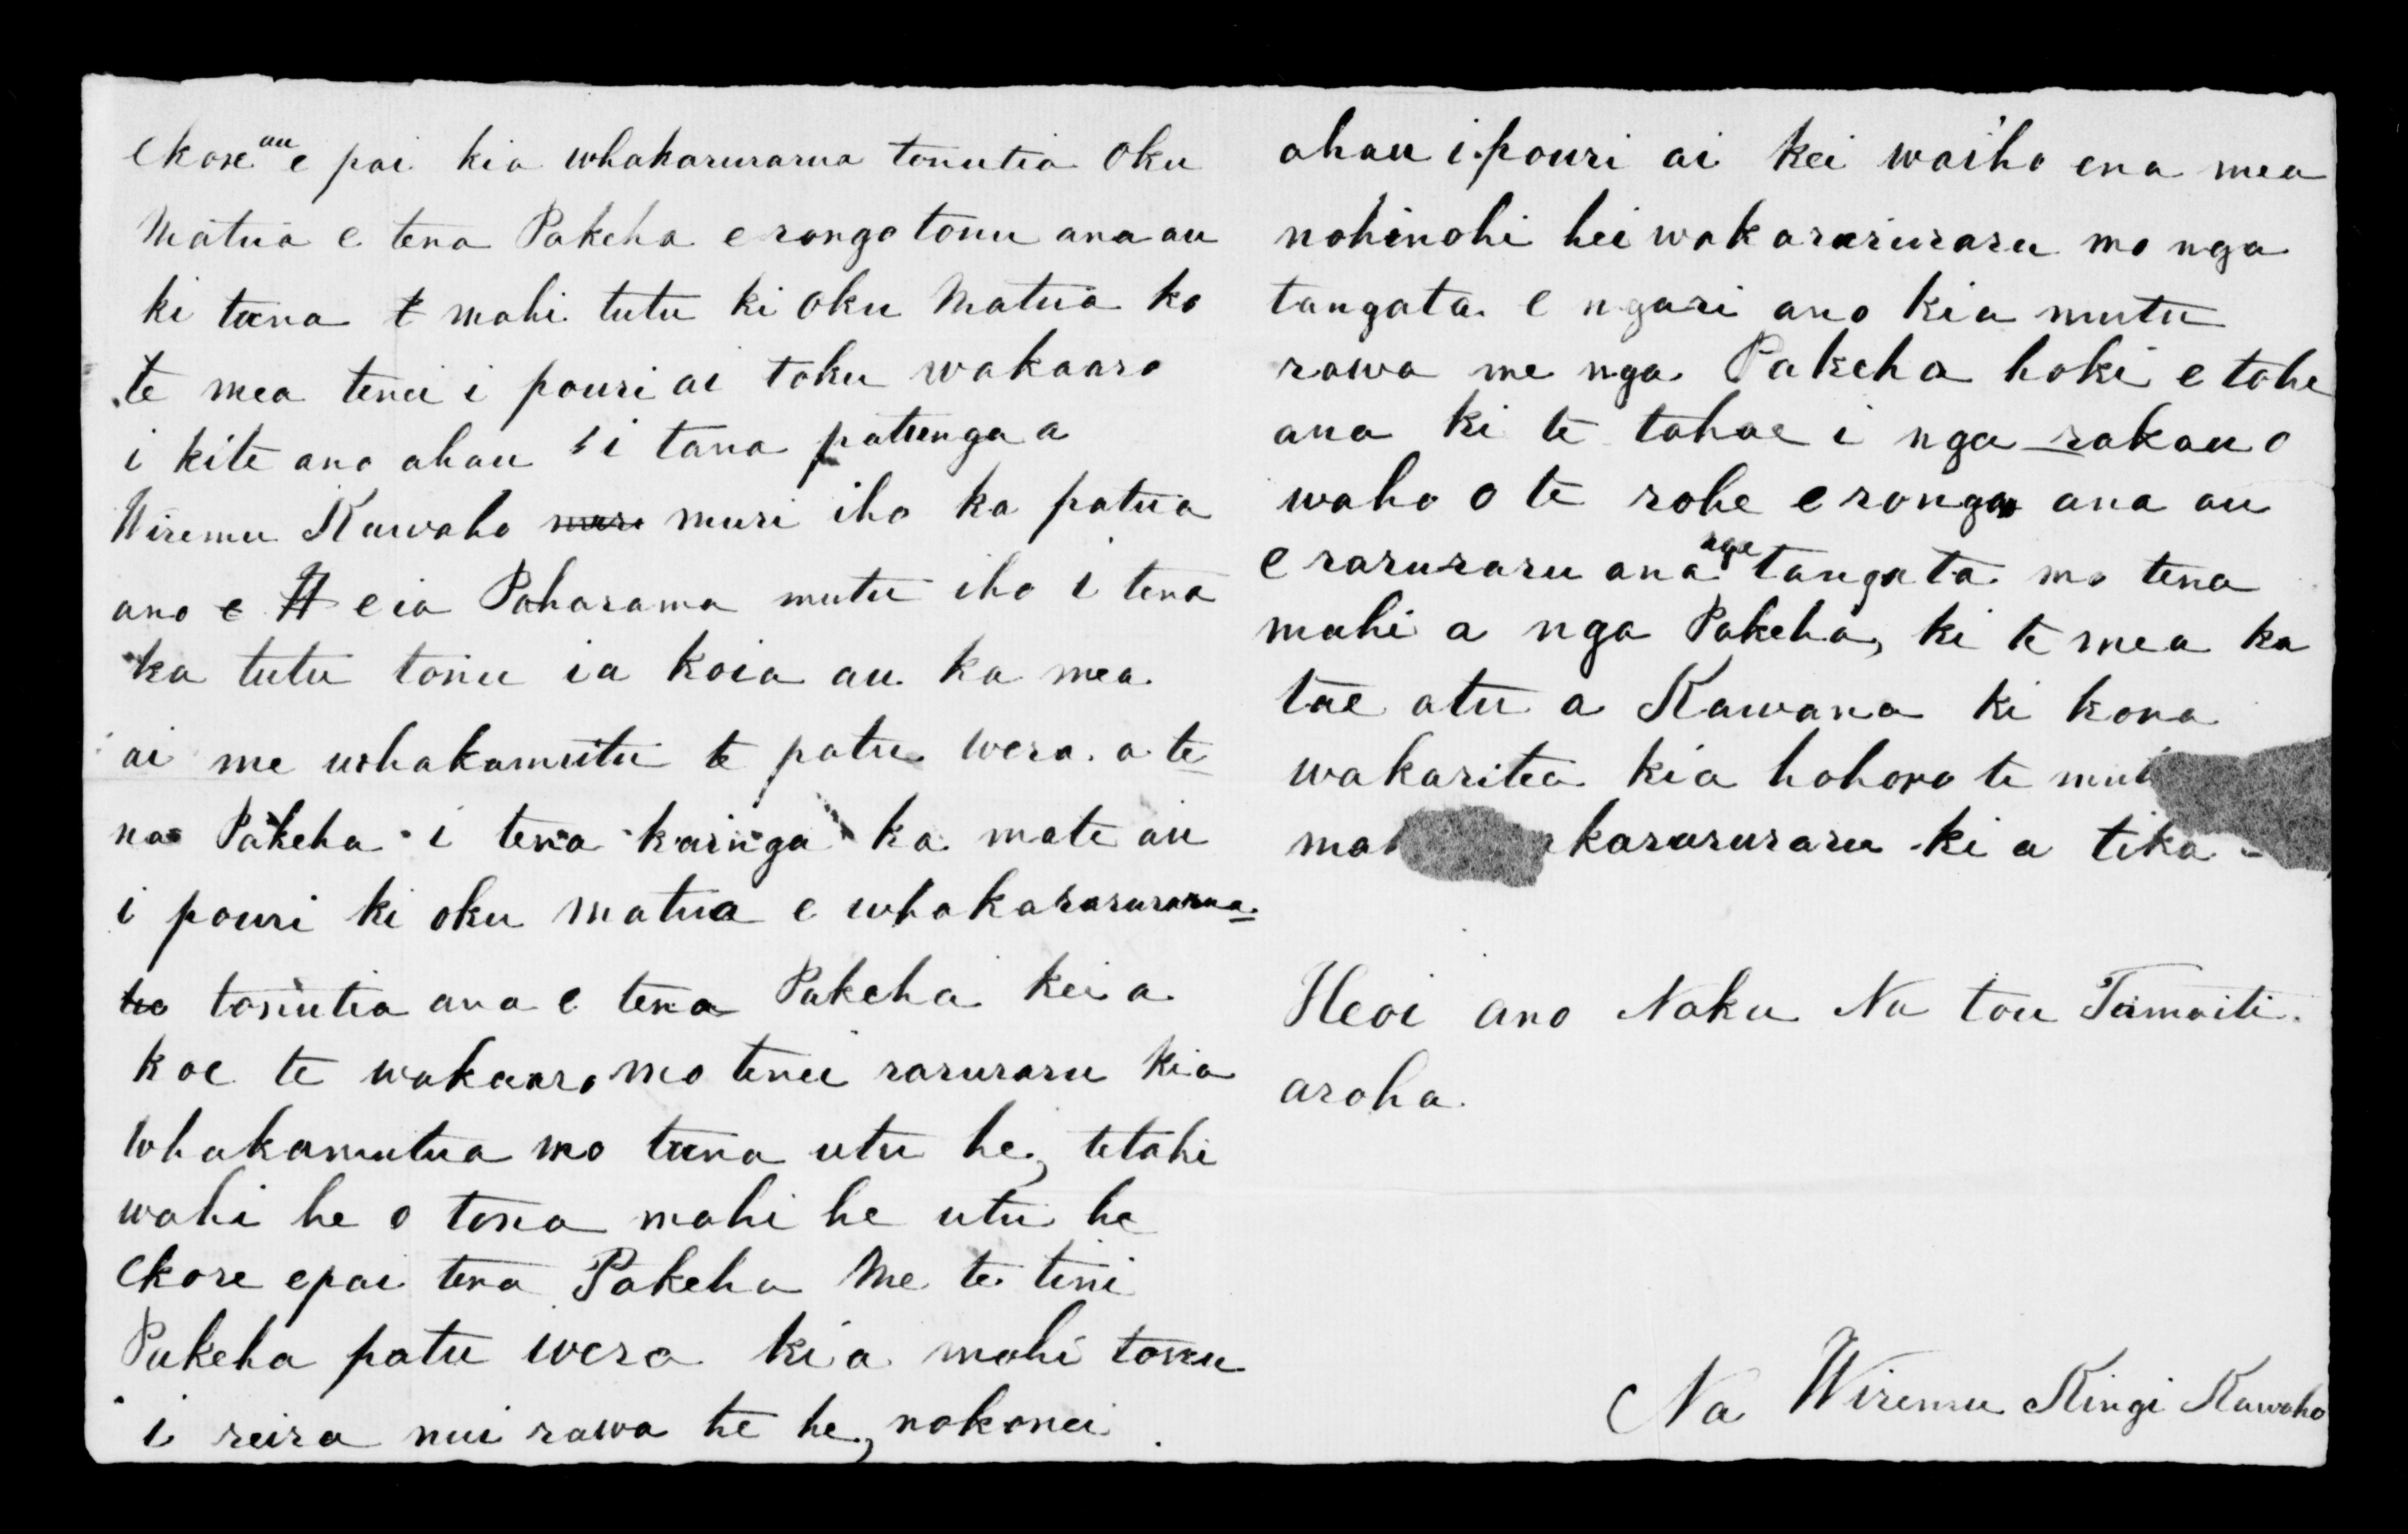 Ekore au e pai kia whakarurarua tonutia Oku
Matua e tena Pakeha e rongo tonu ana au
ki tana t mahi tutu ki Oku Matua ko
te mea tenei i pouri ai toku wakaaro
i kite ano ahau i tana patunga a
Wiremu Kawaho muri muri iho ka patua
ano e H e ia Paharama mutu iho i tena
ka tutu tonu ia koia au ka mea
ai me whakamutu te patu wera a te
na Pakeha i tena kainga ka mate au
i pouri ki oku matua e whakararurarua
tonutia ana e tena Pakeha kei a
koe te wakaaro mo tenei raruraru kia
whakamutua mo tana utu he, tetahi
wahi he o tona mahi he utu he
Ekore e pai tena Pakeha Me te tini
Pakeha patu wera kia mahi tonu
i reira nui rawa te he, nokonei
ahau i pouri ai kei waiho ena mea
nohinohi hei wakararuraru mo nga
tangata e ngari ano kia mutu
rawa me nga Pakeha hoki e tohe
ana ki te tahae i nga rakau o
waho o te rohe e rongo ana au
e raruraru ana nga tangata mo tena
mahi a nga Pakeha, ki te mea ka
tae atu a Kawana ki kona
wakaritea kia hohoro te
kararuraru kia tika
Heoi ano Naku Na tou Tamaiti
aroha.
Na Wiremu Kingi Kawaho